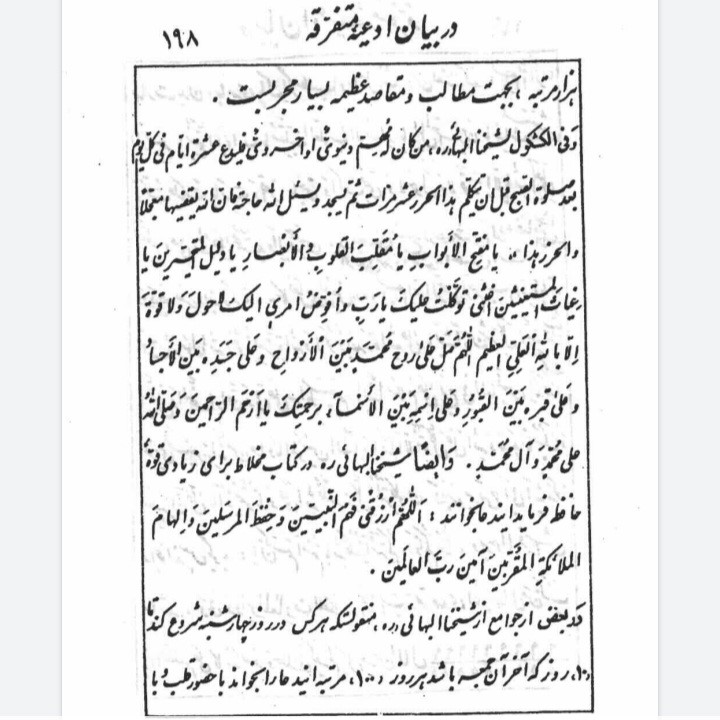 در بیان ادعیه متفرقه ۱۹۸
هزار مرتبه، بجهت مطالب و مقاصد عظیمه بسیار مجربست.
وَفی الکشکول لشیخنا البهائی ره، من کان له مهم دنیویّ او اخرویّ فلیدع عشرة ایام فی کلّ یوم
بعد صلوة الصبح قبل ان یتکلم بهذا الحرز عشر مرات ثم یسجد و یسئل الله حاجة فان الله یقضیها معجلا
والحرز هذا، یا مُفَتِّحَ الأبوابِ یا مُقَلِّبَ القلوبِ وَالأَبصارِ یا دلیلَ المتحیرینَ یا
غیاثَ المستغیثینَ اغثنی تَوَکَّلتُ علیکَ یا رَبِّ واُفَوِّضُ امری الیکَ لاحولَ وَلا قوةَ
اِلا بِاللهِ العَلِیِّ العظیمِ اللّهُمَّ صَلِّ علی روحِ محمّدٍ بَینَ الأرواحِ وعَلی جَسَدِهِ بَینَ الأجسادِ
وعَلی قبرهِ بَینَ القبُورِ وعلی اسمِهِ بَینَ الأسماءِ برحمتِکَ یا ارحَمَ الرّاحمینَ وَصلّی اللهُ
علی محمّدٍ وآل محمّدٍ. وَایضًا شیخنا البهائی ره در کتاب مخلاط برای زیادی قوةُ
حافظه فرماید ایندعا بخوانند: اَللّهُمَّ ارزُقنی فَهمَ النَّبیّینَ وَحِفظَ المرسَلینَ وَاِلهامَ
الملائکةِ المقرَّبینَ آمینَ ربَّ العالَمینَ.
قد بعض از جوامع از شیخنا البهائی ره، منقولستکه هر کس در روز چهارشنبه شروع کند تا
۱۰، روز که آخر آن جمعه باشد هر روز ۱۰۰، مرتبه ایندعا را بخواند با حضور قلب و با